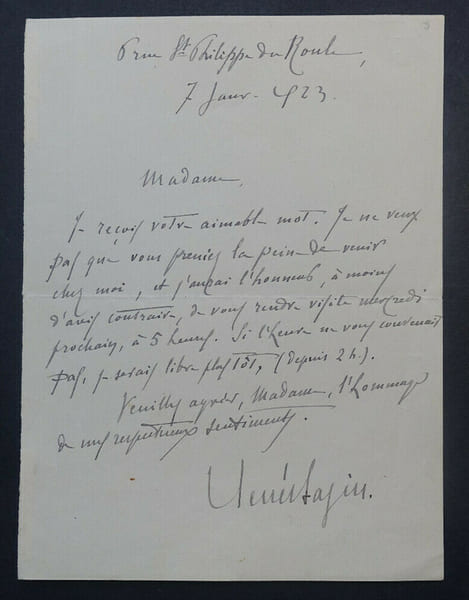 6 rue St Philippe du Roule,
7 Janv. 1923.
Madame,
Je reçois votre aimable mot. Je ne veux
pas que vous preniez la peine de venir
chez moi, et j'aurai l'honneur, à moins
d'avis contraire, de vous rendre visite mercredi
prochain, à 5 heures. Si l'heure ne vous convenait
pas, je serais libre plus tôt, (depuis 2 h.).
Veuillez agréer, Madame, l'hommage
de mes respectueux sentiments.